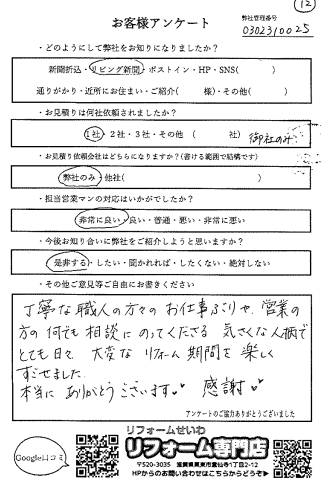 12
お客様アンケート
弊社管理番号
0302310025
・どのようにして弊社をお知りになりましたか？
新聞折込・リビング新聞・ポストイン・HP・SNS(　　　)
通りがかり・近所にお住まい・ご紹介(　　　様)・その他(　　　)
・お見積りは何社依頼されましたか？
1社・2社・3社・その他　(　　　社)　御社のみ
・お見積り依頼会社はどちらになりますか？(書ける範囲で結構です)
弊社のみ・他社(　　　)
・担当営業マンの対応はいかがでしたか？
非常に良い・良い・普通・悪い・非常に悪い
・今後お知り合いに弊社をご紹介しようと思いますか？
是非する・したい・聞かれれば・したくない・絶対しない
・その他ご意見等ご自由にお書きください
丁寧な職人の方々のお仕事ぶりや、営業の
方の何でも相談にのってくださる 気さくな人柄で
とても日々、大変なリフォーム期間を楽しく
すごせました。
本当に ありがとうございます♡ 感謝♡
アンケートのご協力ありがとうございました
Google口コミ
リフォームせいわ
リフォーム専門店
〒520-3035 滋賀県栗東市霊仙寺1丁目2-12
HPからのお問い合わせはこちらからどうぞ